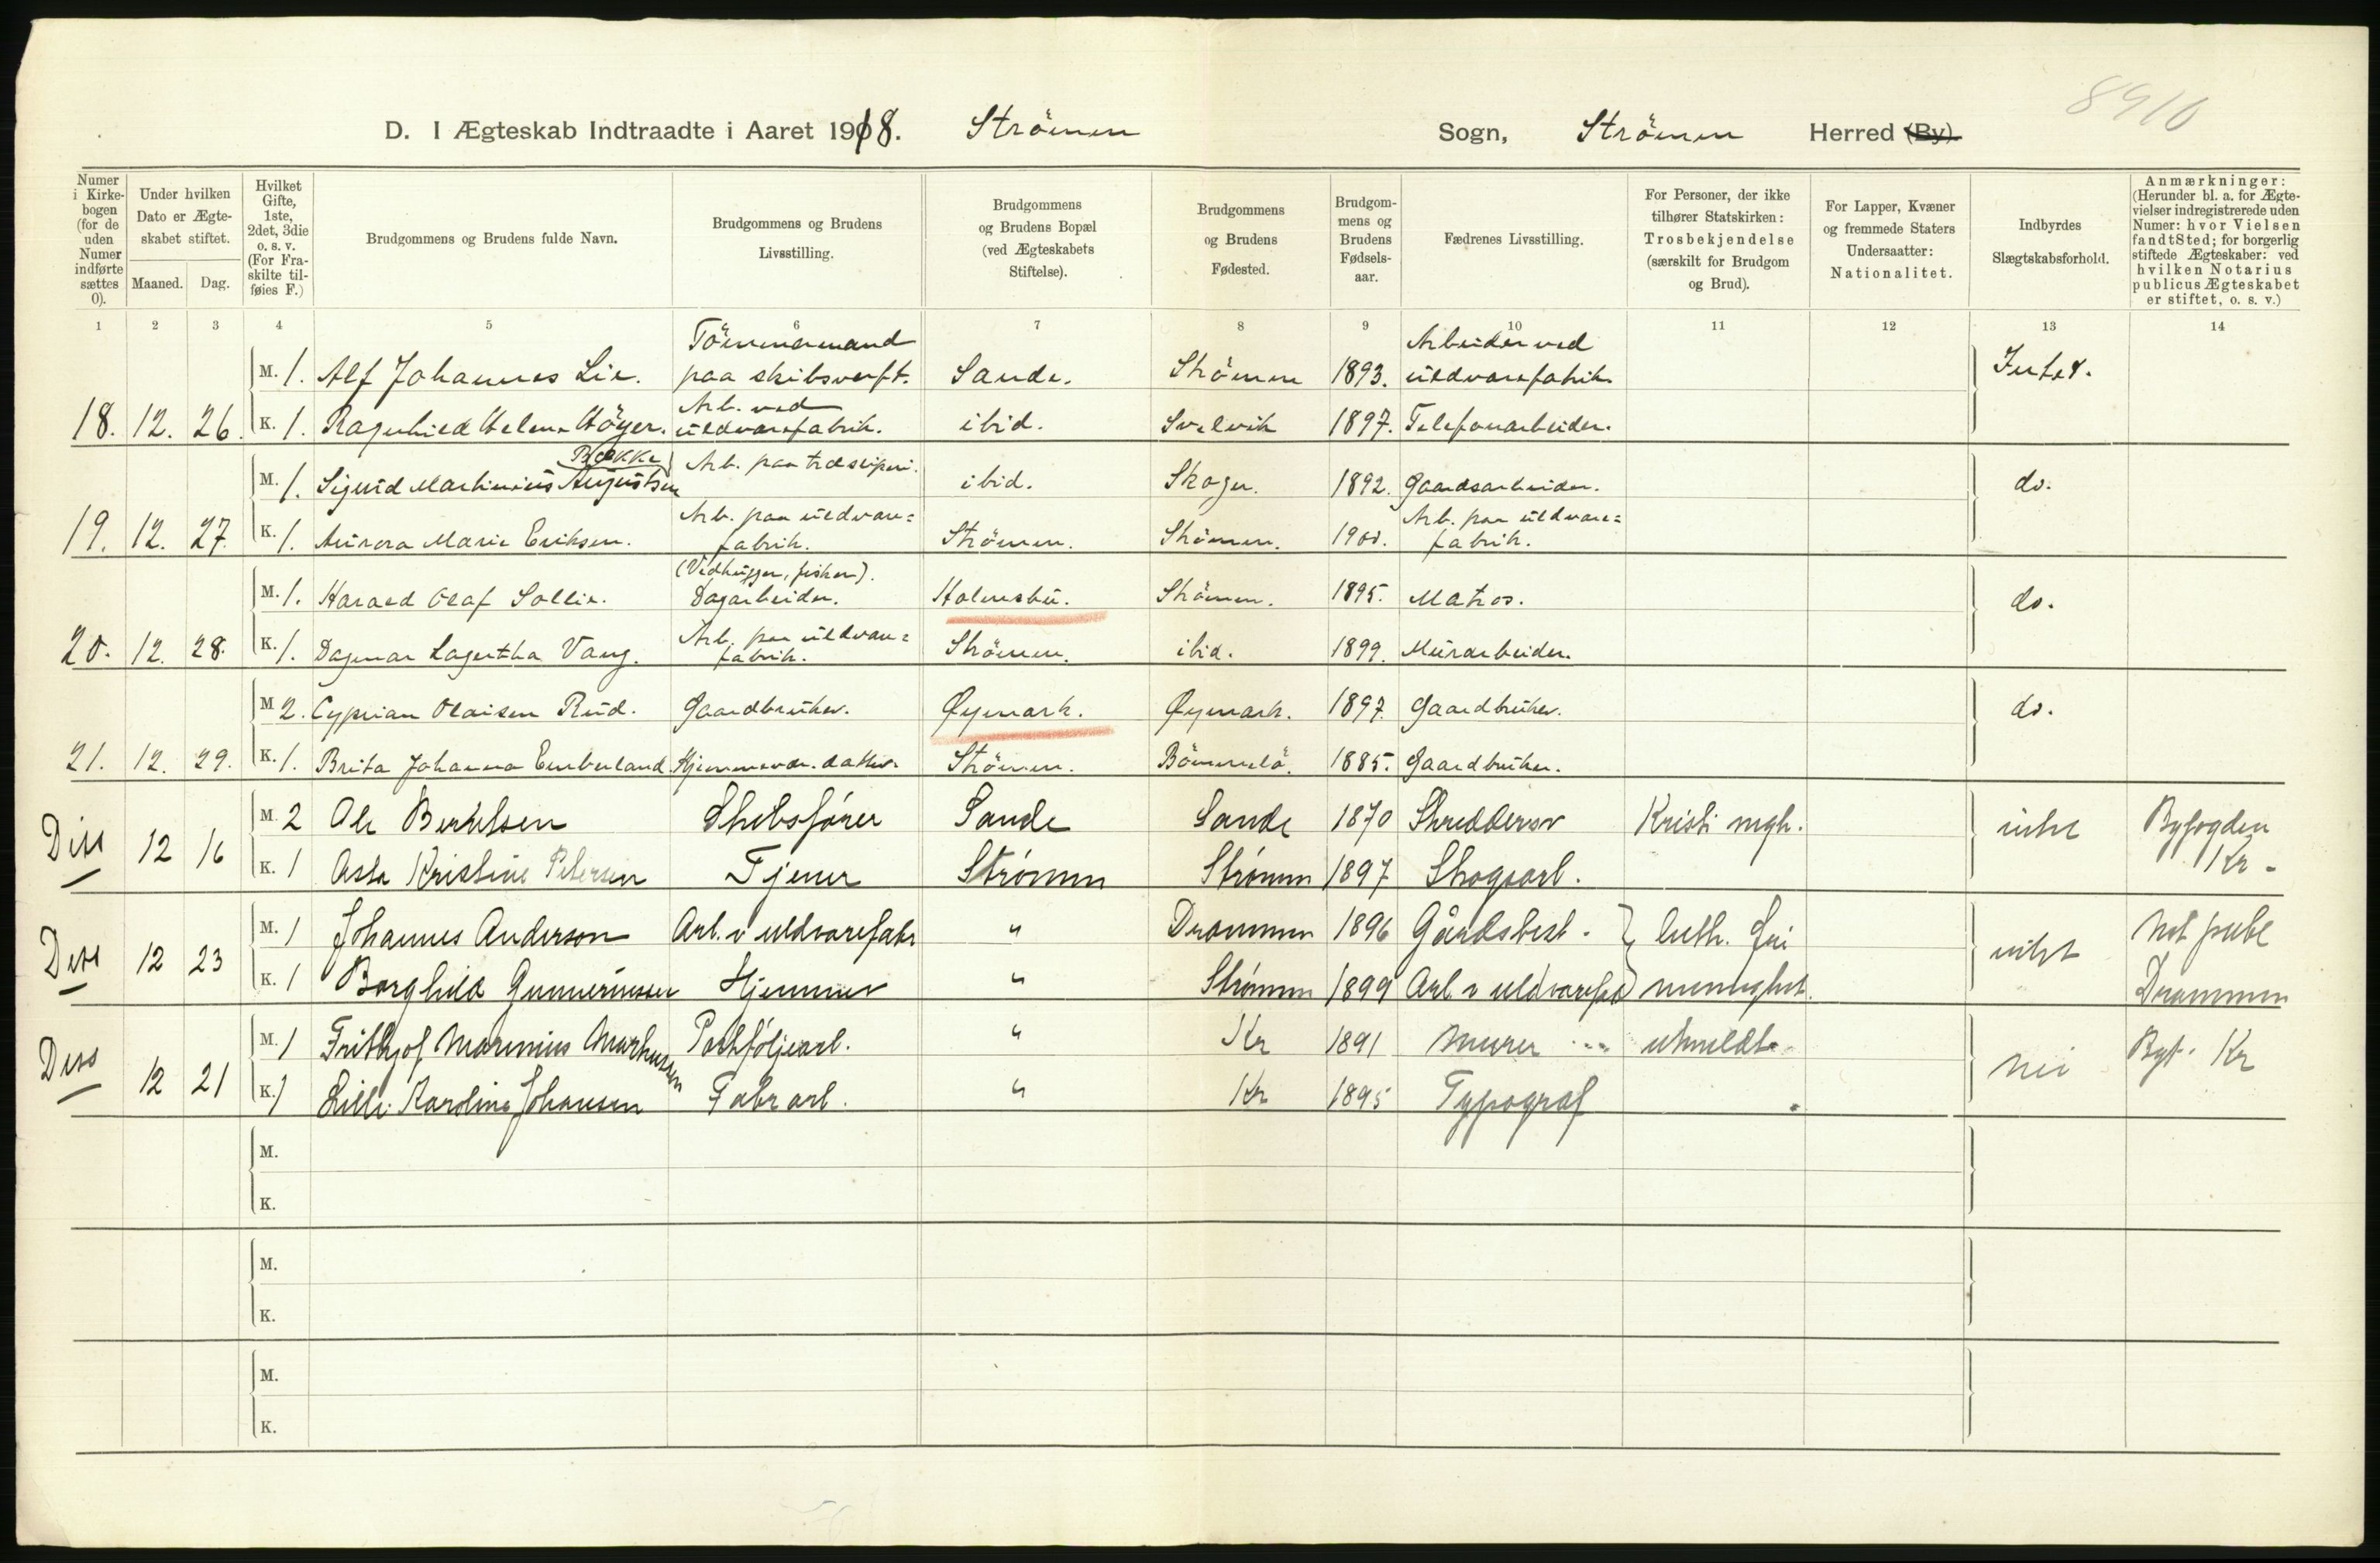 8910
D. I Ægteskab Indtraadte i Aaret 1918. Strömm Sogn, Strömm Herred (By)
Numer i Kirkebogen (for de uden Numer indførte sættes 0).
Under hvilken Dato er Ægteskabet stiftet.
Maaned. Dag.
Hvilket Gifte, 1ste, 2det, 3die o. s. v. (For Fraskilte tilføies F.)
Brudgommens og Brudens fulde Navn.
Brudgommens og Brudens Livsstilling.
Brudgommens og Brudens Bopæl (ved Ægteskabets Stiftelse).
Brudgommens og Brudens Fødested.
Brudgommens og Brudens Fødselsaar.
Fædrenes Livsstilling.
For Personer, der ikke tilhører Statskirken: Trosbekjendelse (særskilt for Brudgom og Brud).
For Lapper, Kvæner og fremmede Staters Undersaatter: Nationalitet.
Indbyrdes Slægtskabsforhold.
Anmærkninger: (Herunder bl. a. for Ægtevielser indregistrerede uden Numer: hvor Vielsen fandt Sted; for borgerlig stiftede Ægteskaber: ved hvilken Notarius publicus Ægteskabet er stiftet, o. s. v.)
1 2 3 4 5 6 7 8 9 10 11 12 13 14
M. 1. Alf Johannes Lie. Tömmermand paa skibsverft. Sande. Strömm 1893. Arbeider ved uldvarefabrik Intet.
18. 12. 26. K. 1. Ragnhild Helene Höyer. Arb. ved uldvarefabrik. ibid. Svelvik 1897. Telefonarbeider.
M. 1. Sigurd Martinius Augustsen Bække Arb. paa træsliperi. ibid. Skoger. 1892. Gaardsarbeider. do.
19. 12. 27. K. 1. Aurora Marie Eriksen. Arb. paa uldvarefabrik. Strömm. Strömm. 1900. Arb. paa uldvarefabrik.
M. 1. Harald Olaf Sollie. (Vedhugger, fisker). Dagarbeider. Holmsbu. Strömm. 1895. Matros. do.
20. 12. 28. K. 1. Dagmar Lagertha Vang. Arb. paa uldvarefabrik. Strömm. ibid. 1899. Murarbeider.
M. 2. Cyprian Olaisen Rud. Gaardbruker. Øymark. Øymark. 1897. Gaardbruker. do.
21. 12. 29. K. 1. Brita Johanna Emberland. Hjemmevær. datter. Strömm. Bömmelö. 1885. Gaardbruker.
M. 2 Ole Bertelsen Skibsfører Sande Sande 1870 Skredderm Kristi mgh. intet Byfogden
Diss 12 16 K. 1 Asta Kristine Petersen Tjener Strömm Strömm 1897 Skogsarb. Kr.
M. 1 Johannes Anderson Arb. v uldvarefabr " Drammen 1896 Gårdsbest. } luth. fri intet Not publ
Diss 12 23 K. 1 Borghild Gunneriussen Hjemmev " Strömm 1899 Arb v uldvarefab menighet. Drammen
M. 1 Frithjof Marinius Markussen Portföljearb. " Kr 1891 Murer utmeldt nei Byf. Kr
Diss 12 21 K. 1 Lilli Karoline Johansen Fabr arb. " Kr 1895 Typograf "
M.
K.
M.
K.
M.
K.